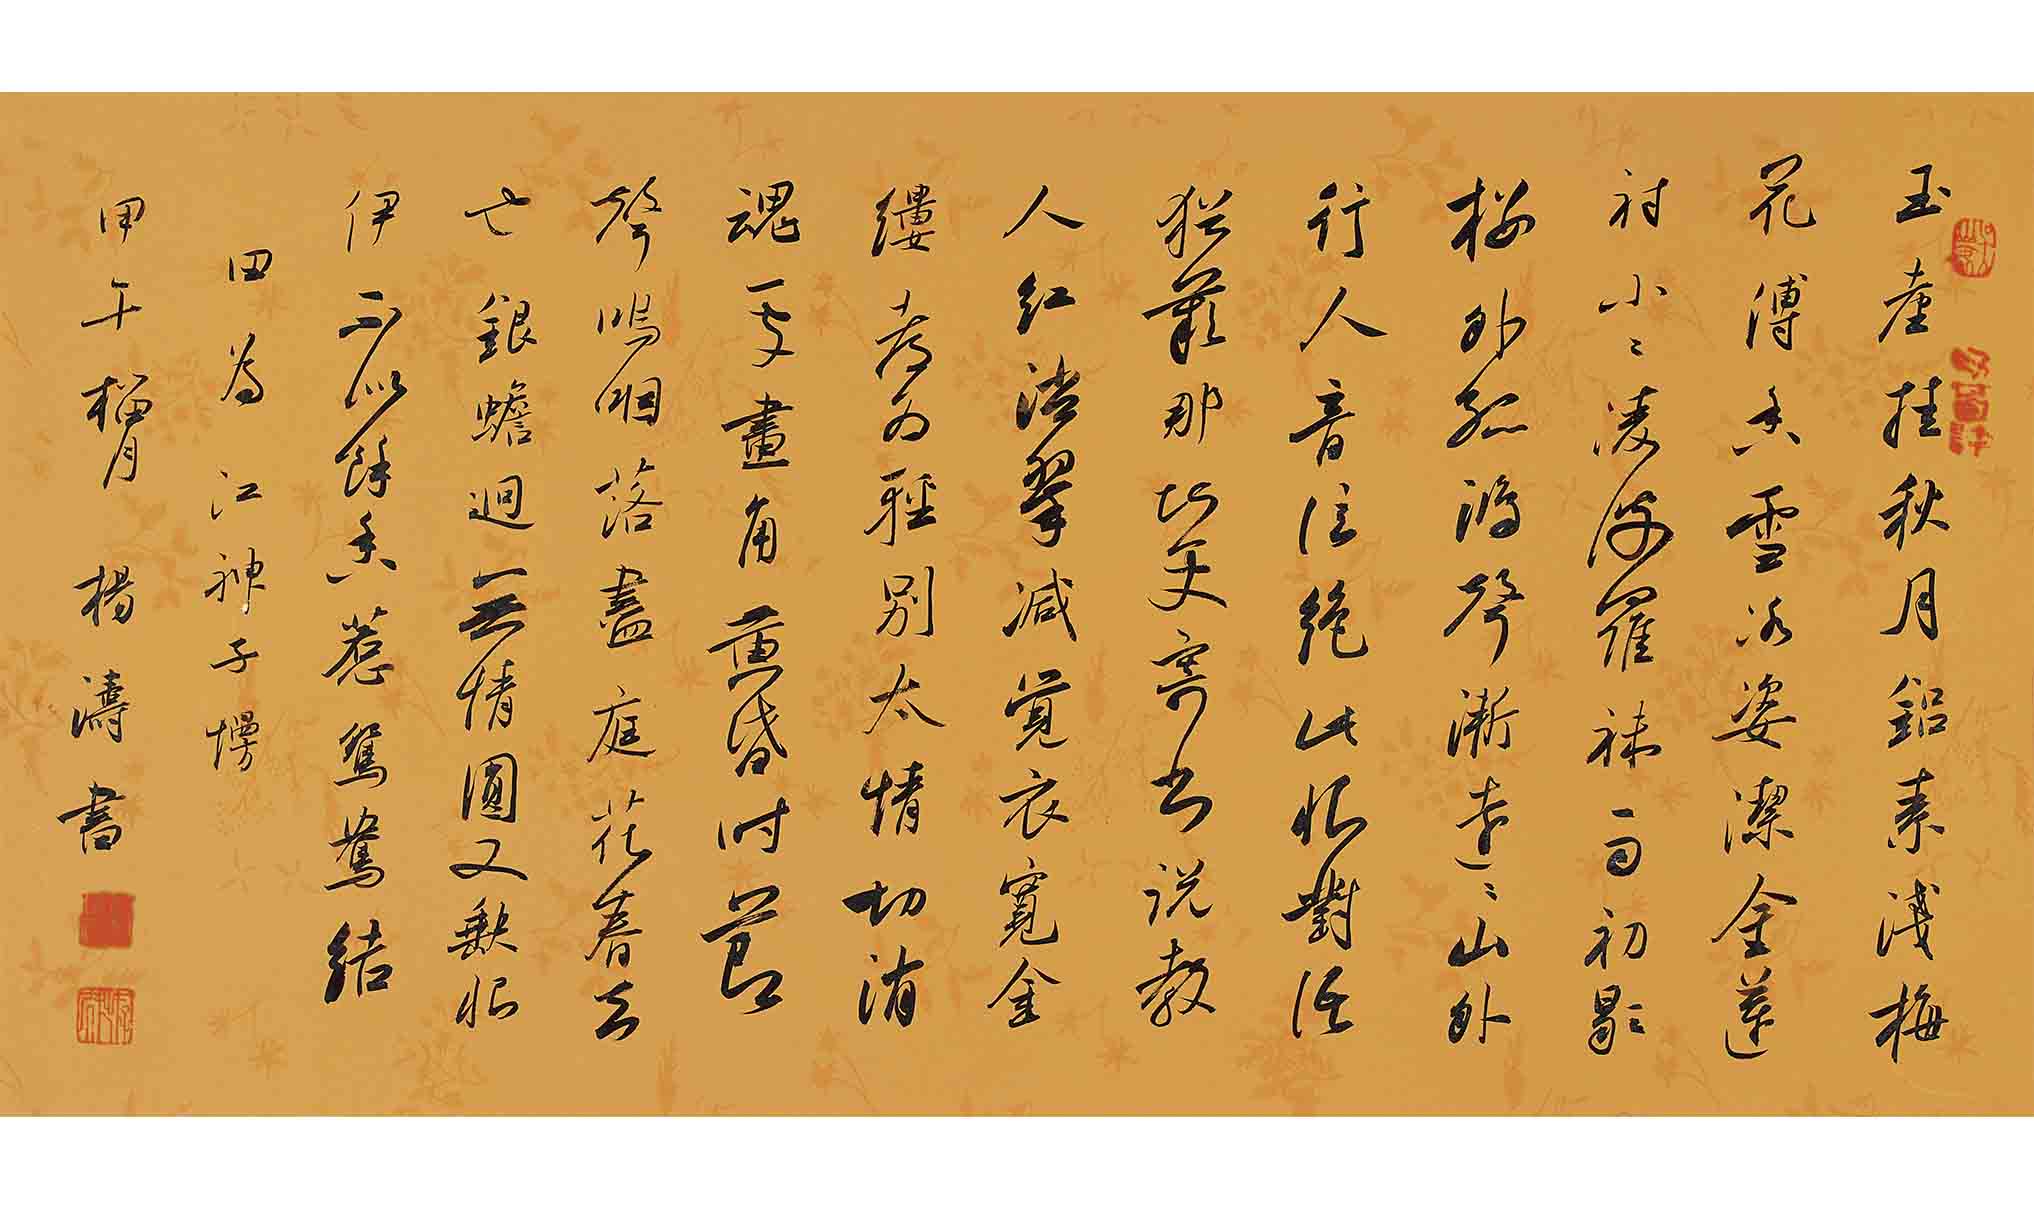 玉臺挂秋月鉛素淺梅
花傅香雪冰姿潔金蓮
襯小〻凌波羅襪雨初歇
樓外孤鴻聲漸遠〻山外
行人音信絕此恨對語
猶難那堪更寄書説教
人紅消翠減覺衣寬金
縷都為輕別太情切消
魂處畫角黃昏時節
聲嗚咽落盡庭花春去
也銀蟾迥無情圓又缺恨
伊不似餘香惹鴛鴦結
田為江神子慢
甲午榴月楊濤書